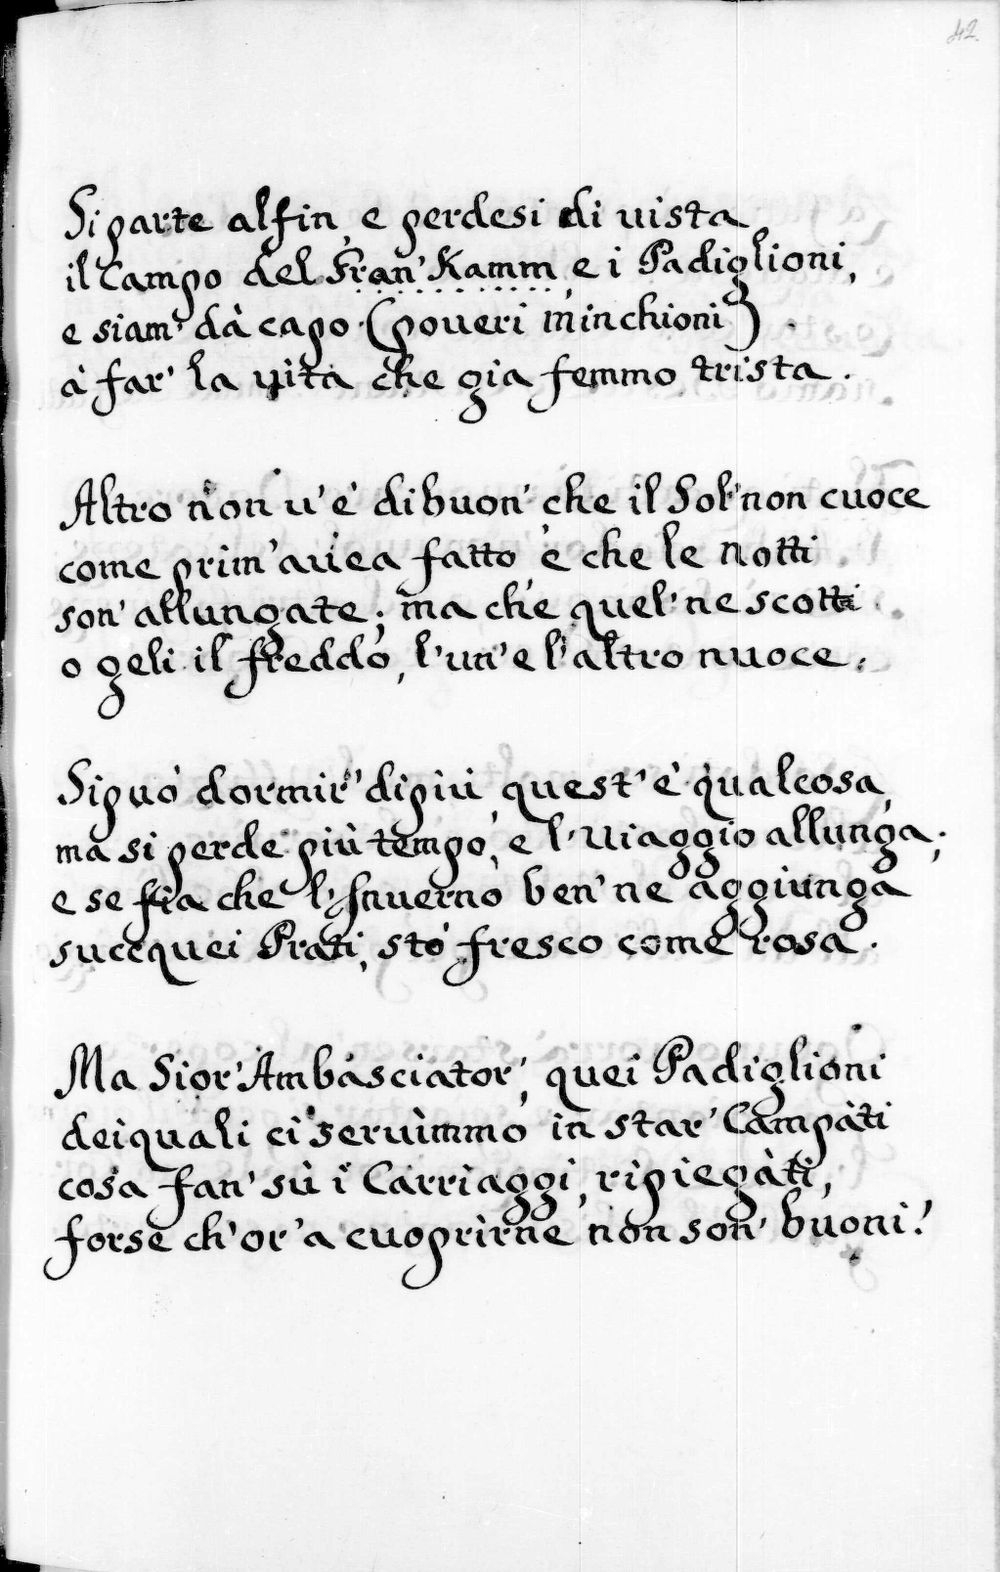 42.
Si parte alfin, e perdesi di uista
il Campo del Fran' Kamm, e i Padiglioni,
e siam' dà capo (poueri minchioni)
à far' la uita che gia femmo trista.
Altro non u'è di buon' che il Sol' non cuoce
come prim' auea fatto è che le notti
son' allungate; ma che quel' ne scotti
o geli il freddo, l'un' e l'altro nuoce.
Si puó dormir' di più, quest'è qualcosa,
ma si perde più tempo, e l'uiaggio allunga;
e se fia che l'Inuerno ben' ne aggiunga
succ quei Prati, stó fresco come rosa.
Ma Sior' Ambasciator', quei Padiglioni
dei quali ci seruimmo in star' Campàti
cosa fan' sù i Carriaggi, ripiegàti,
forse ch'or' a cuoprirne non son' buoni!